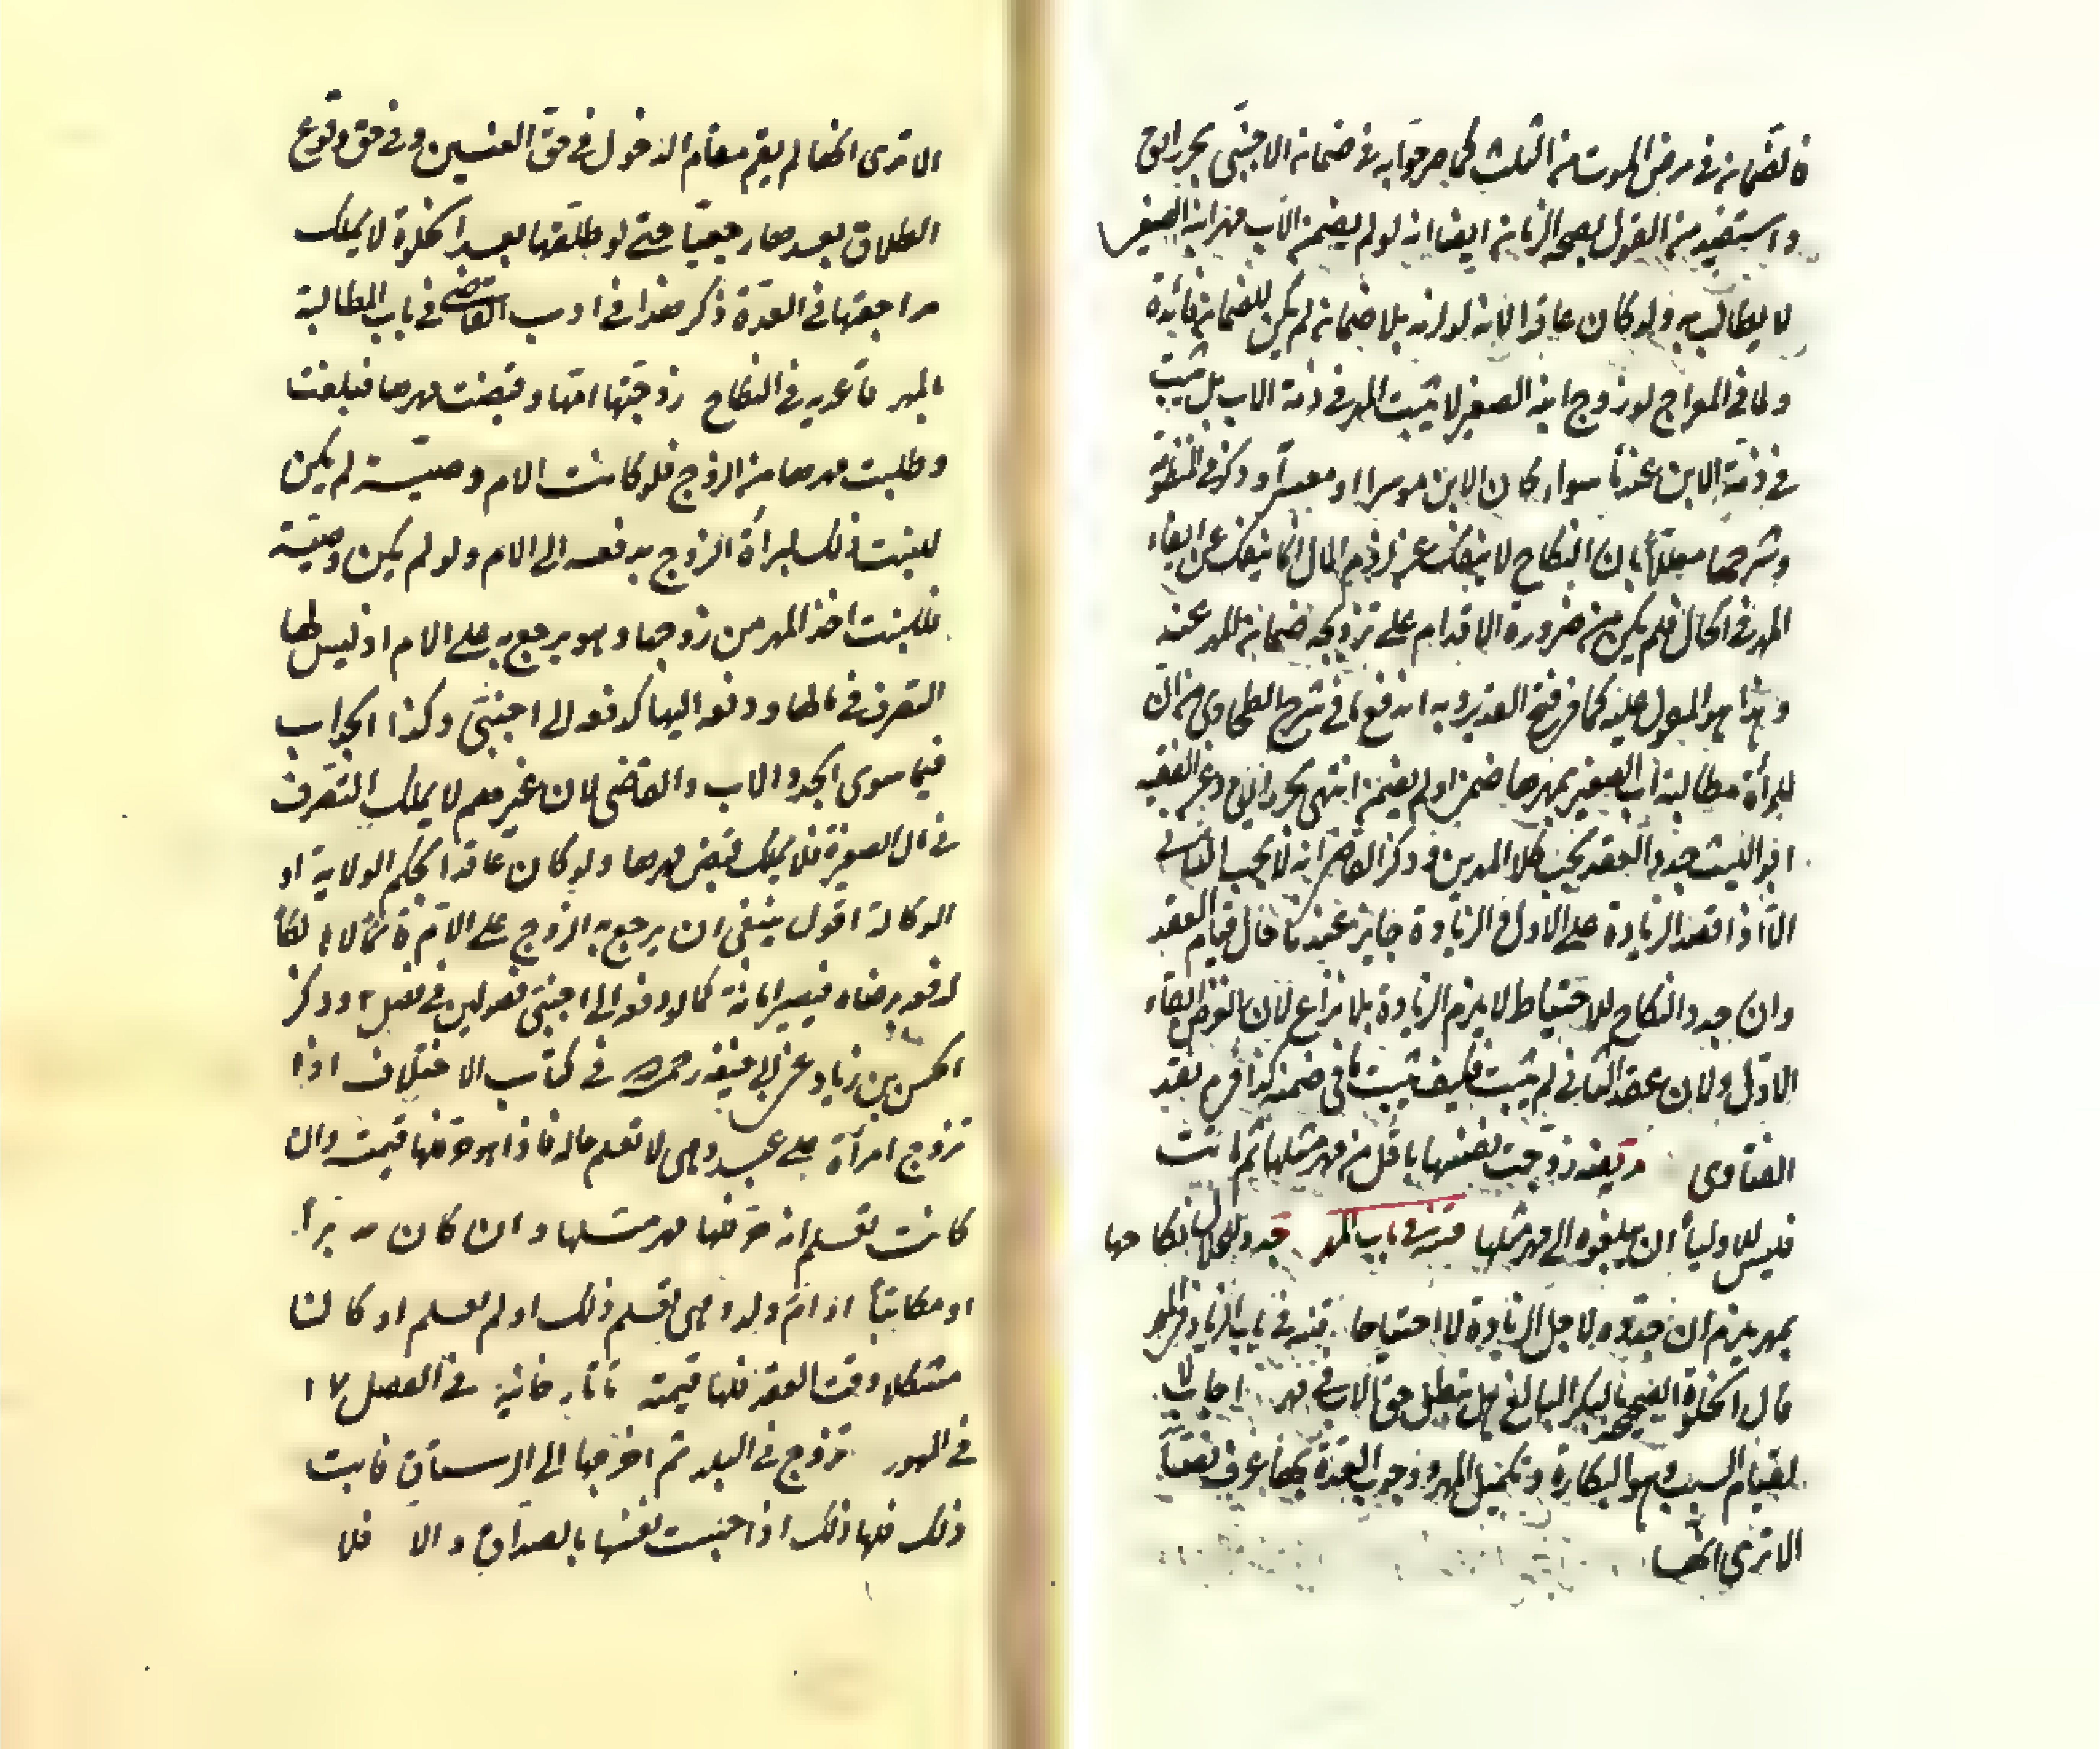 فالضمان في مرض الموت من الثلث كما صرحوا به في ضمان الاجنبي بحر رائق
واستفيد من القول بصحة الضمان ايضا انه لو لم يضمن الاب مهر ابنه الصغير
لا يطالب به ولو كان عاقدا لانه لو لزمه بلا ضمان لم يكن للضمان فائدة
ولما في المعراج لو زوج ابنه الصغير لا يثبت المهر في ذمة الاب بل يثبت
في ذمة الابن عندنا سواء كان الابن موسرا او معسرا وذكر في المنظومة
وشرحها معللا بان النكاح لا ينفك عن لزوم المال انما ينفك عن ايفاء
المهر في الحال فلم يكن من ضرورة الاقدام على تزويجه ضمان المهر عنه
وهذا هو المعول عليه كما في فتح القدير وبه اندفع ما في شرح الطحاوي من ان
للمرأة مطالبة اب الصغير بمهرها ضمن او لم يضمن انتهى بحر رائق وعن الفقيه
ابو الليث جدد العقد يجب كلا المهرين وذكر القاضي انه لا يجب الثاني
الا اذا قصد الزيادة على الاول والزيادة جايز عندنا حال قيام العقد
وان جدد النكاح للاحتياط لا يلزم الزيادة بلا نزاع لان الغرض ابقاء
الاول ولان عقد الثاني لم يثبت فكيف يثبت ما في ضمنه كذا في نقد
الفتاوى مريضة زوجت نفسها باقل من مهر مثلها ثم ماتت
فليس للاوليا ان يبلغوه الى مهر مثلها قنية في باب المهر جدد للحلال نكاحها
بمهر يلزم ان جدده لاجل الزيادة لا احتياطا قنية في باب الزيادة في المهر
قال الخلوة الصحيحة بالبكر البالغ هل تبطل حق الاب في مهر اجاب لا
لقيام السبب وهو البكارة وتكميل المهر ووجوب العدة بها عرف نصا
الا ترى انها
الا ترى انها لم يقم مقام الدخول في حق العنين وفي حق وقوع
الطلاق بعدها رجعيا حتى لو طلقها بعد الخلوة لا يملك
مراجعتها في العدة ذكر هذا في ادب القاضي في باب المطالبة
بالمهر قاعدية في النكاح زوجتها امها وقبضت مهرها فبلغت
وطلبت مهرها من الزوج فلو كانت الام وصية لم يكن
للبنت ذلك لبرأة الزوج بدفعه الى الام ولو لم يكن وصية
فللبنت اخذ المهر من زوجها وهو يرجع به على الام اذ ليس لها
التصرف في مالها ودفعه اليها كدفعه الى اجنبي وكذا الجواب
فيما سوى الجد والاب والقاضي لان غيرهم لا يملك التصرف
في مال الصغيرة فلا يملك قبض مهرها ولو كان عاقدا بحكم الولاية او
الوكالة اقول ينبغي ان يرجع به الزوج على الام قائما لا هالكا
لدفعه برضاه فيصير امانة كما لو دفع الى اجنبي فصولين في فصل ٢ وذكر
الحسن بن زياد عن ابي حنيفة رحمه الله في كتاب الاختلاف اذا
تزوج امرأة على عبد وهي لا تعلم حاله فاذا هو حر فلها قيمته وان
كانت تعلم انه حر فلها مهر مثلها وان كان مدبرا
او مكاتبا او ام ولد وهي تعلم ذلك او لم تعلم او كانتا
مشكلا وقت العقد فلها قيمته تاتارخانية في الفصل ١٧
في المهور تزوج في البلد ثم اخرجها الى الرستاق فابت
ذلك فلها ذلك اذا حبست نفسها بالصداق والا فلا